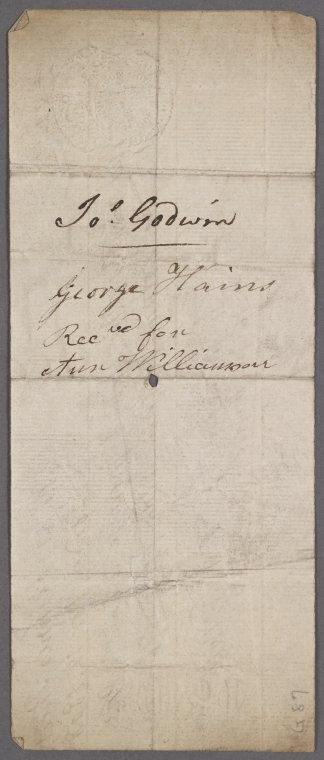 Jo.s Godwin
George Hains
Rec.ved for
Ann Williamson
G87